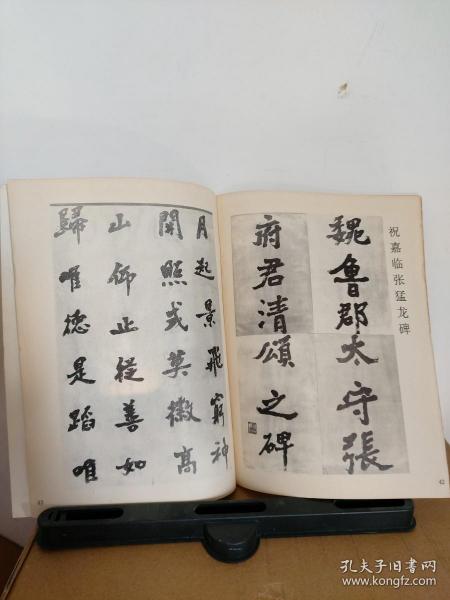 祝嘉临张猛龙碑
魏魯郡太守張
府君清頌之碑
42
月起景飛窮神
開照式英徽高
山仰止從善如
歸唯德是蹈唯
43
孔夫子旧书网
www.kongfz.com